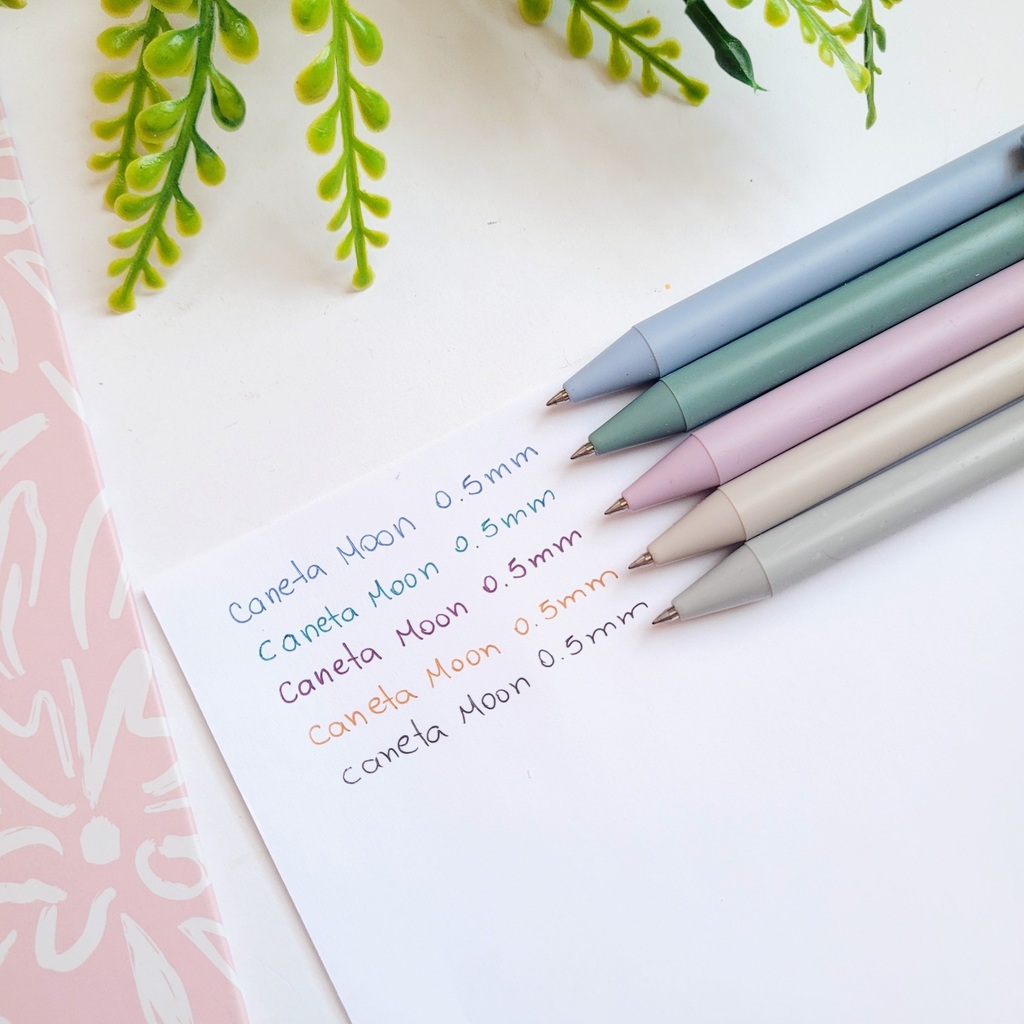 Caneta Moon 0.5mm
Caneta Moon 0.5mm
Caneta Moon 0.5mm
Caneta Moon 0.5mm
Caneta Moon 0.5mm